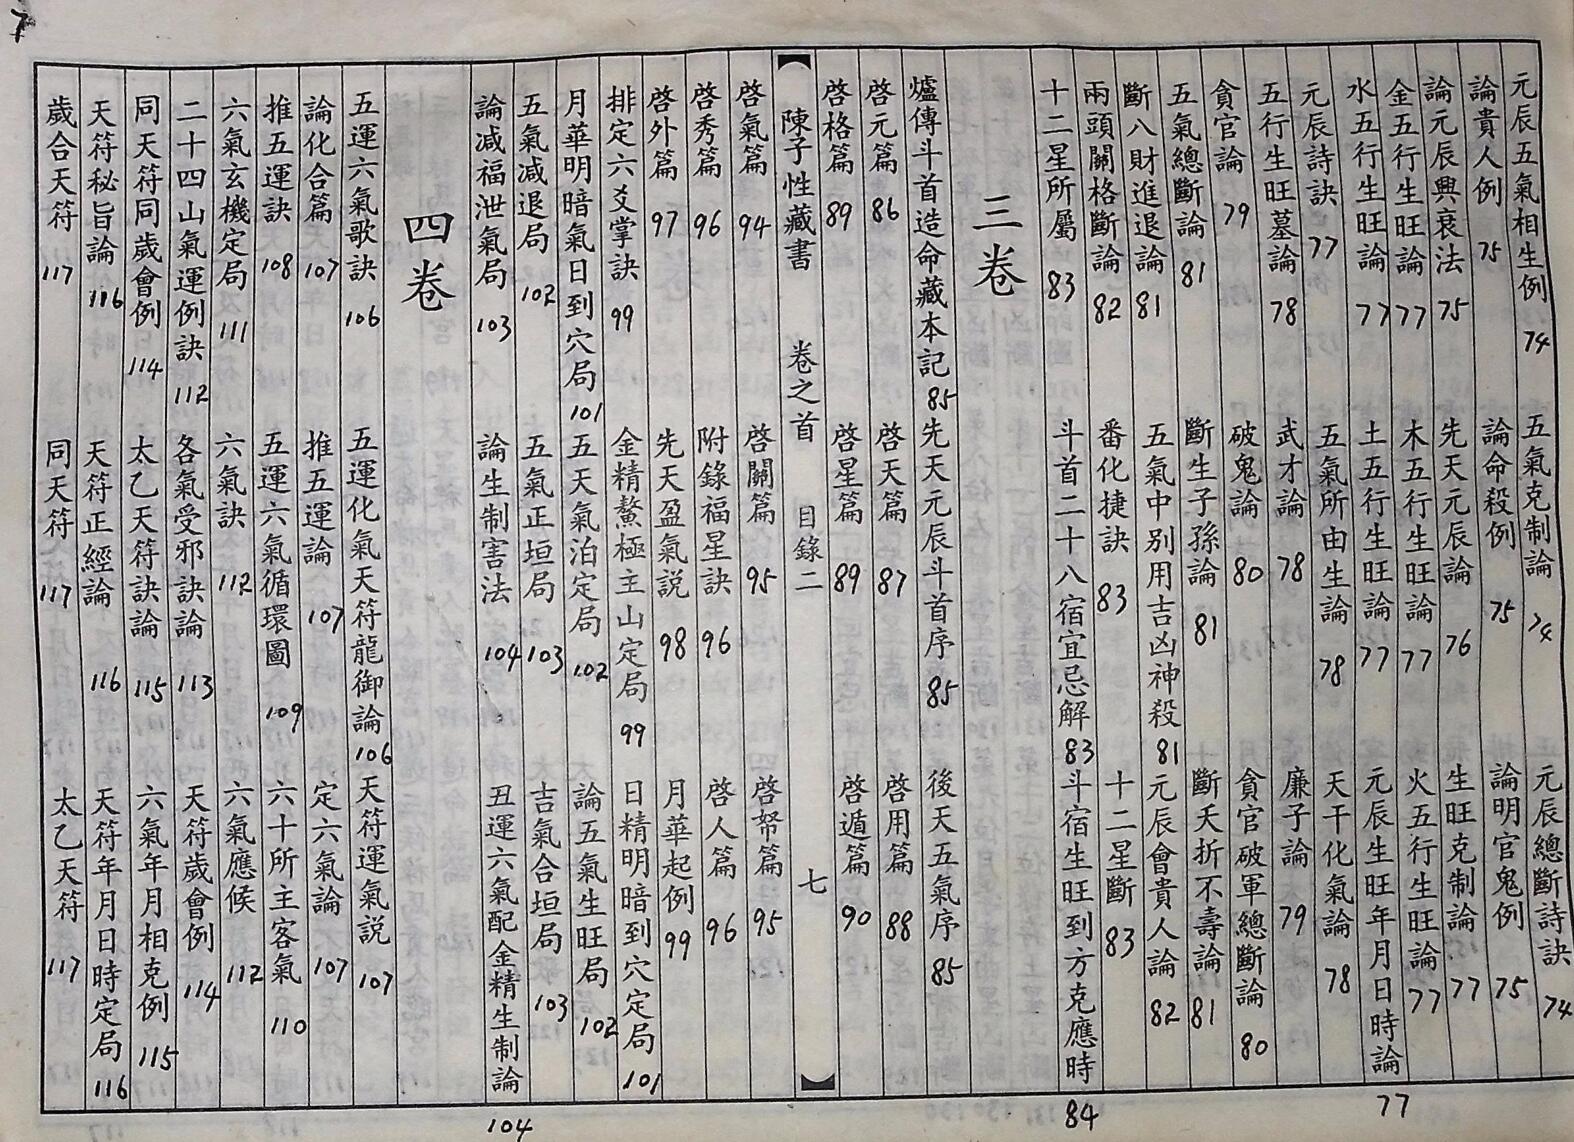 7
元辰五氣相生例 74 五氣克制論 74 元辰總斷詩訣 74
論貴人例 75 論命殺例 75 論明官鬼例 75
論元辰興衰法 75 先天元辰論 76 生旺克制論 77
金五行生旺論 77 木五行生旺論 77 火五行生旺論 77
水五行生旺論 77 土五行生旺論 77 元辰生旺年月日時論 77
元辰詩訣 77 五氣所由生論 78 天干化氣論 78
五行生旺墓論 78 武才論 78 廉子論 79
貪官論 79 破鬼論 80 貪官破軍總斷論 80
五氣總斷論 81 斷生子孫論 81 斷夭折不壽論 81
斷八財進退論 81 五氣中別用吉凶神殺 81 元辰會貴人論 82
兩頭關格斷論 82 番化捷訣 83 十二星斷 83
十二星所屬 83 斗首二十八宿宜忌解 83 斗宿生旺到方克應時 84
三卷
爐傳斗首造命藏本記 85 先天元辰斗首序 85 後天五氣序 85
啓元篇 86 啓天篇 87 啓用篇 88
啓格篇 89 啓星篇 89 啓遁篇 90
陳子性藏書 卷之首 目錄二 七
啓氣篇 94 啓關篇 95 啓帑篇 95
啓秀篇 96 附錄福星訣 96 啓人篇 96
啓外篇 97 先天盈氣説 98 月華起例 99
排定六爻掌訣 99 金精鰲極主山定局 99 日精明暗到穴定局 101
月華明暗氣日到穴局 101 五天氣泊定局 102 論五氣生旺局 102
五氣減退局 102 五氣正垣局 103 吉氣合垣局 103
論減福泄氣局 103 論生制害法 104 丑運六氣配金精生制論 104
四卷
五運六氣歌訣 106 五運化氣天符龍御論 106 天符運氣説 107
論化合篇 107 推五運論 107 定六氣論 107
推五運訣 108 五運六氣循環圖 109 六十所主客氣 110
六氣玄機定局 111 六氣訣 112 六氣應候 112
二十四山氣運例訣 112 各氣受邪訣論 113 天符歲會例 114
同天符同歲會例 114 太乙天符訣論 115 六氣年月相克例 115
天符秘旨論 116 天符正經論 116 天符年月日時定局 116
歲合天符 117 同天符 117 太乙天符 117